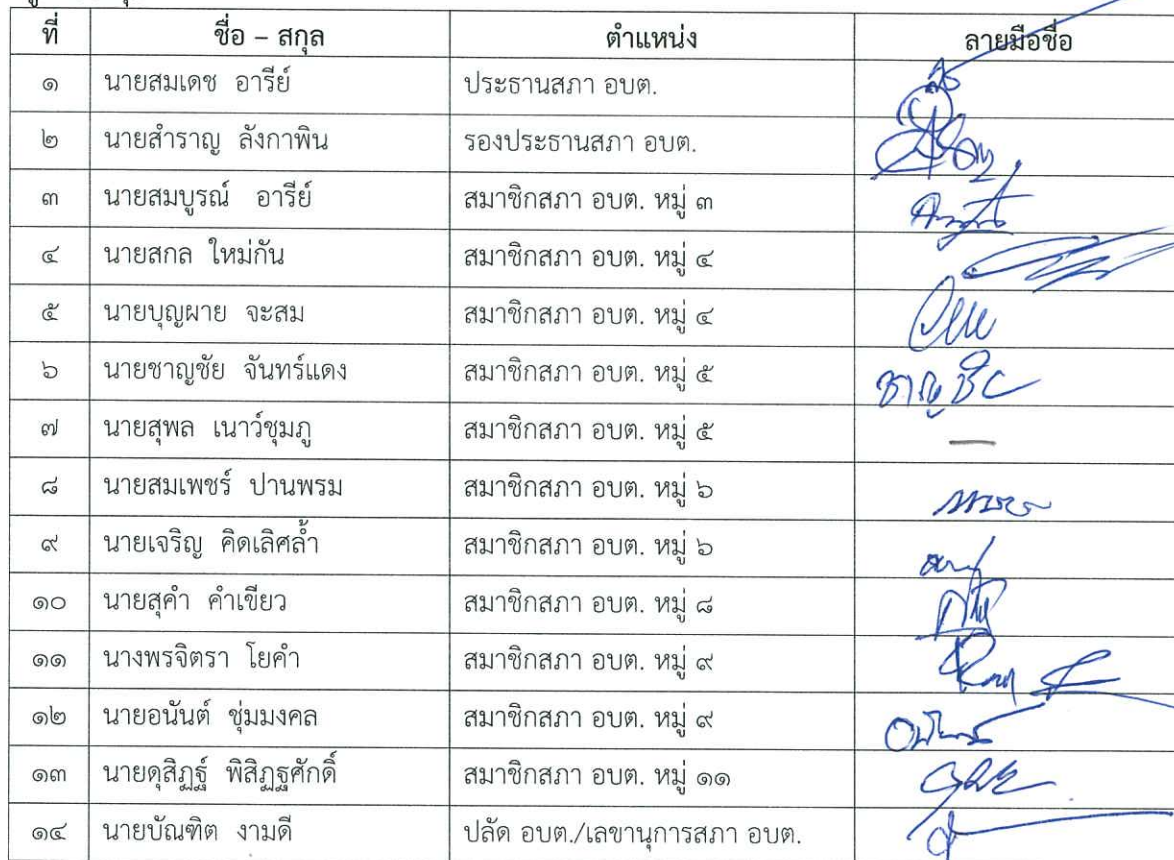 ที่ ชื่อ – สกุล ตำแหน่ง ลายมือชื่อ
๑ นายสมเดช อารีย์ ประธานสภา อบต.
๒ นายสำราญ ลังกาพิน รองประธานสภา อบต.
๓ นายสมบูรณ์ อารีย์ สมาชิกสภา อบต. หมู่ ๓
๔ นายสกล ใหม่กัน สมาชิกสภา อบต. หมู่ ๔
๕ นายบุญผาย จะสม สมาชิกสภา อบต. หมู่ ๔
๖ นายชาญชัย จันทร์แดง สมาชิกสภา อบต. หมู่ ๕ ชาญชัย
๗ นายสุพล เนาว์ชุมภู สมาชิกสภา อบต. หมู่ ๕ —
๘ นายสมเพชร์ ปานพรม สมาชิกสภา อบต. หมู่ ๖
๙ นายเจริญ คิดเลิศล้ำ สมาชิกสภา อบต. หมู่ ๖
๑๐ นายสุคำ คำเขียว สมาชิกสภา อบต. หมู่ ๘
๑๑ นางพรจิตรา โยคำ สมาชิกสภา อบต. หมู่ ๙
๑๒ นายอนันต์ ชุ่มมงคล สมาชิกสภา อบต. หมู่ ๙
๑๓ นายดุสิฏฐ์ พิสิฏฐศักดิ์ สมาชิกสภา อบต. หมู่ ๑๑
๑๔ นายบัณฑิต งามดี ปลัด อบต./เลขานุการสภา อบต.